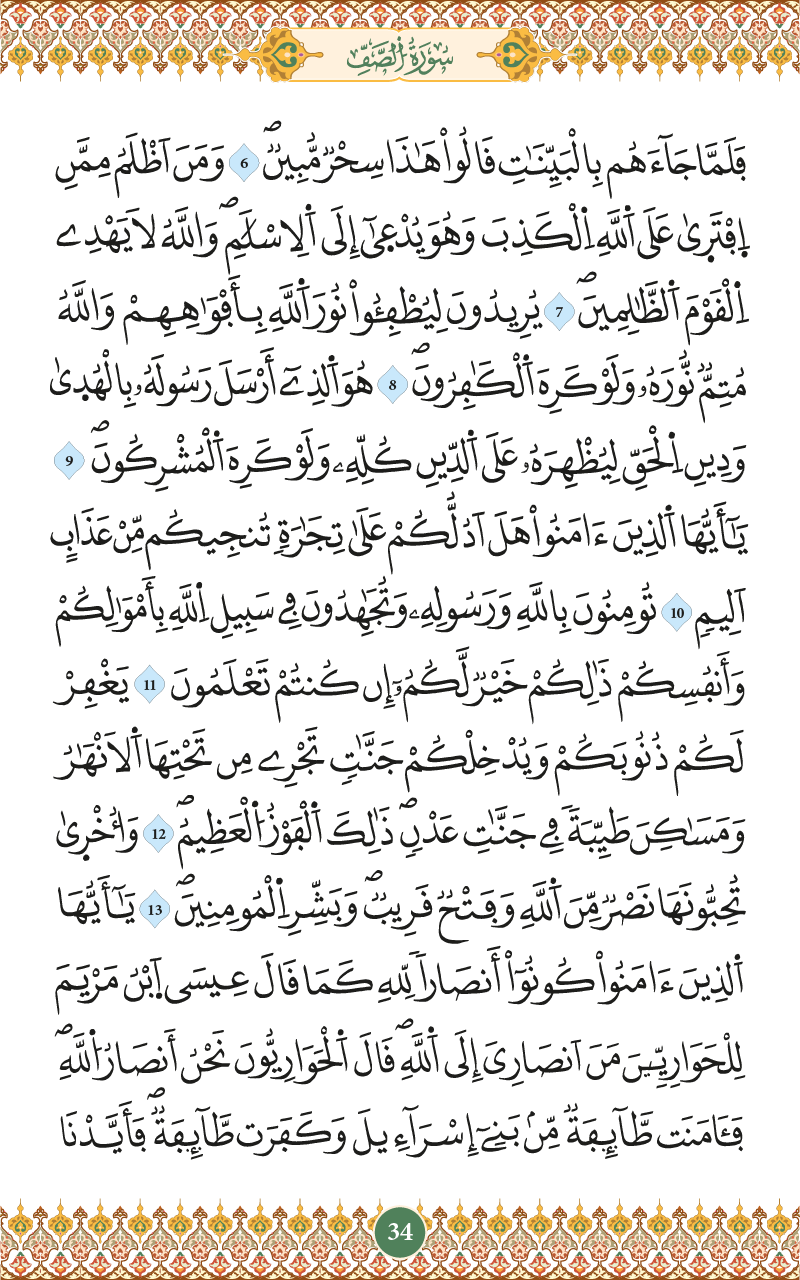 سُورَةُ الصَّفِّ
فَلَمَّا جَآءَهُم بِالْبَيِّنَٰتِ قَالُواْ هَٰذَا سِحْرٞ مُّبِينٞۖ 6 وَمَنَ اَظْلَمُ مِمَّنِ
اِ۪فْتَر۪يٰ عَلَي اَ۬للَّهِ اِ۬لْكَذِبَ وَهُوَ يُدْع۪ىٰٓ إِلَي اَ۬لِاسْلَٰمِۖ وَاللَّهُ لَا يَهْدِے
اِ۬لْقَوْمَ اَ۬لظَّٰلِمِينَۖ 7 يُرِيدُونَ لِيُطْفِـُٔواْ نُورَ اَ۬للَّهِ بِأَفْوَٰهِهِمْ وَاللَّهُ
مُتِمّٞ نُّورَهُۥ وَلَوْ كَرِهَ اَ۬لْكَٰفِرُونَۖ 8 هُوَ اَ۬لذِےٓ أَرْسَلَ رَسُولَهُۥ بِالْهُد۪ىٰ
وَدِينِ اِ۬لْحَقِّ لِيُظْهِرَهُۥ عَلَي اَ۬لدِّينِ كُلِّهِۦ وَلَوْ كَرِهَ اَ۬لْمُشْرِكُونَۖ 9
يَٰٓأَيُّهَا اَ۬لذِينَ ءَامَنُواْ هَلَ اَدُلُّكُمْ عَلَىٰ تِجَٰرَةٖ تُنجِيكُم مِّنْ عَذَابٍ
اَلِيمٖ 10 تُومِنُونَ بِاللَّهِ وَرَسُولِهِۦ وَتُجَٰهِدُونَ فِے سَبِيلِ اِ۬للَّهِ بِأَمْوَٰلِكُمْ
وَأَنفُسِكُمْ ذَٰلِكُمْ خَيْرٞ لَّكُمُۥٓ إِن كُنتُمْ تَعْلَمُونَ 11 يَغْفِرْ
لَكُمْ ذُنُوبَكُمْ وَيُدْخِلْكُمْ جَنَّٰتٖ تَجْرِے مِن تَحْتِهَا اَ۬لَانْهَٰرُ
وَمَسَٰكِنَ طَيِّبَةٗ فِے جَنَّٰتِ عَدْنٖۖ ذَٰلِكَ اَ۬لْفَوْزُ اُ۬لْعَظِيمُۖ 12 وَأُخْر۪ىٰ
تُحِبُّونَهَا نَصْرٞ مِّنَ اَ۬للَّهِ وَفَتْحٞ قَرِيبٞۖ وَبَشِّرِ اِ۬لْمُومِنِينَۖ 13 يَٰٓأَيُّهَا
اَ۬لذِينَ ءَامَنُواْ كُونُوٓاْ أَنصَاراٗ لِّلهِ كَمَا قَالَ عِيسَي اَ۪بْنُ مَرْيَمَ
لِلْحَوَارِيِّـۧنَ مَنَ اَنصَارِيَ إِلَي اَ۬للَّهِۖ قَالَ اَ۬لْحَوَارِيُّونَ نَحْنُ أَنصَارُ اُ۬للَّهِۖ
فَـَٔامَنَت طَّآئِفَةٞ مِّنۢ بَنِےٓ إِسْرَآءِيلَ وَكَفَرَت طَّآئِفَةٞۖ فَأَيَّدْنَا
34